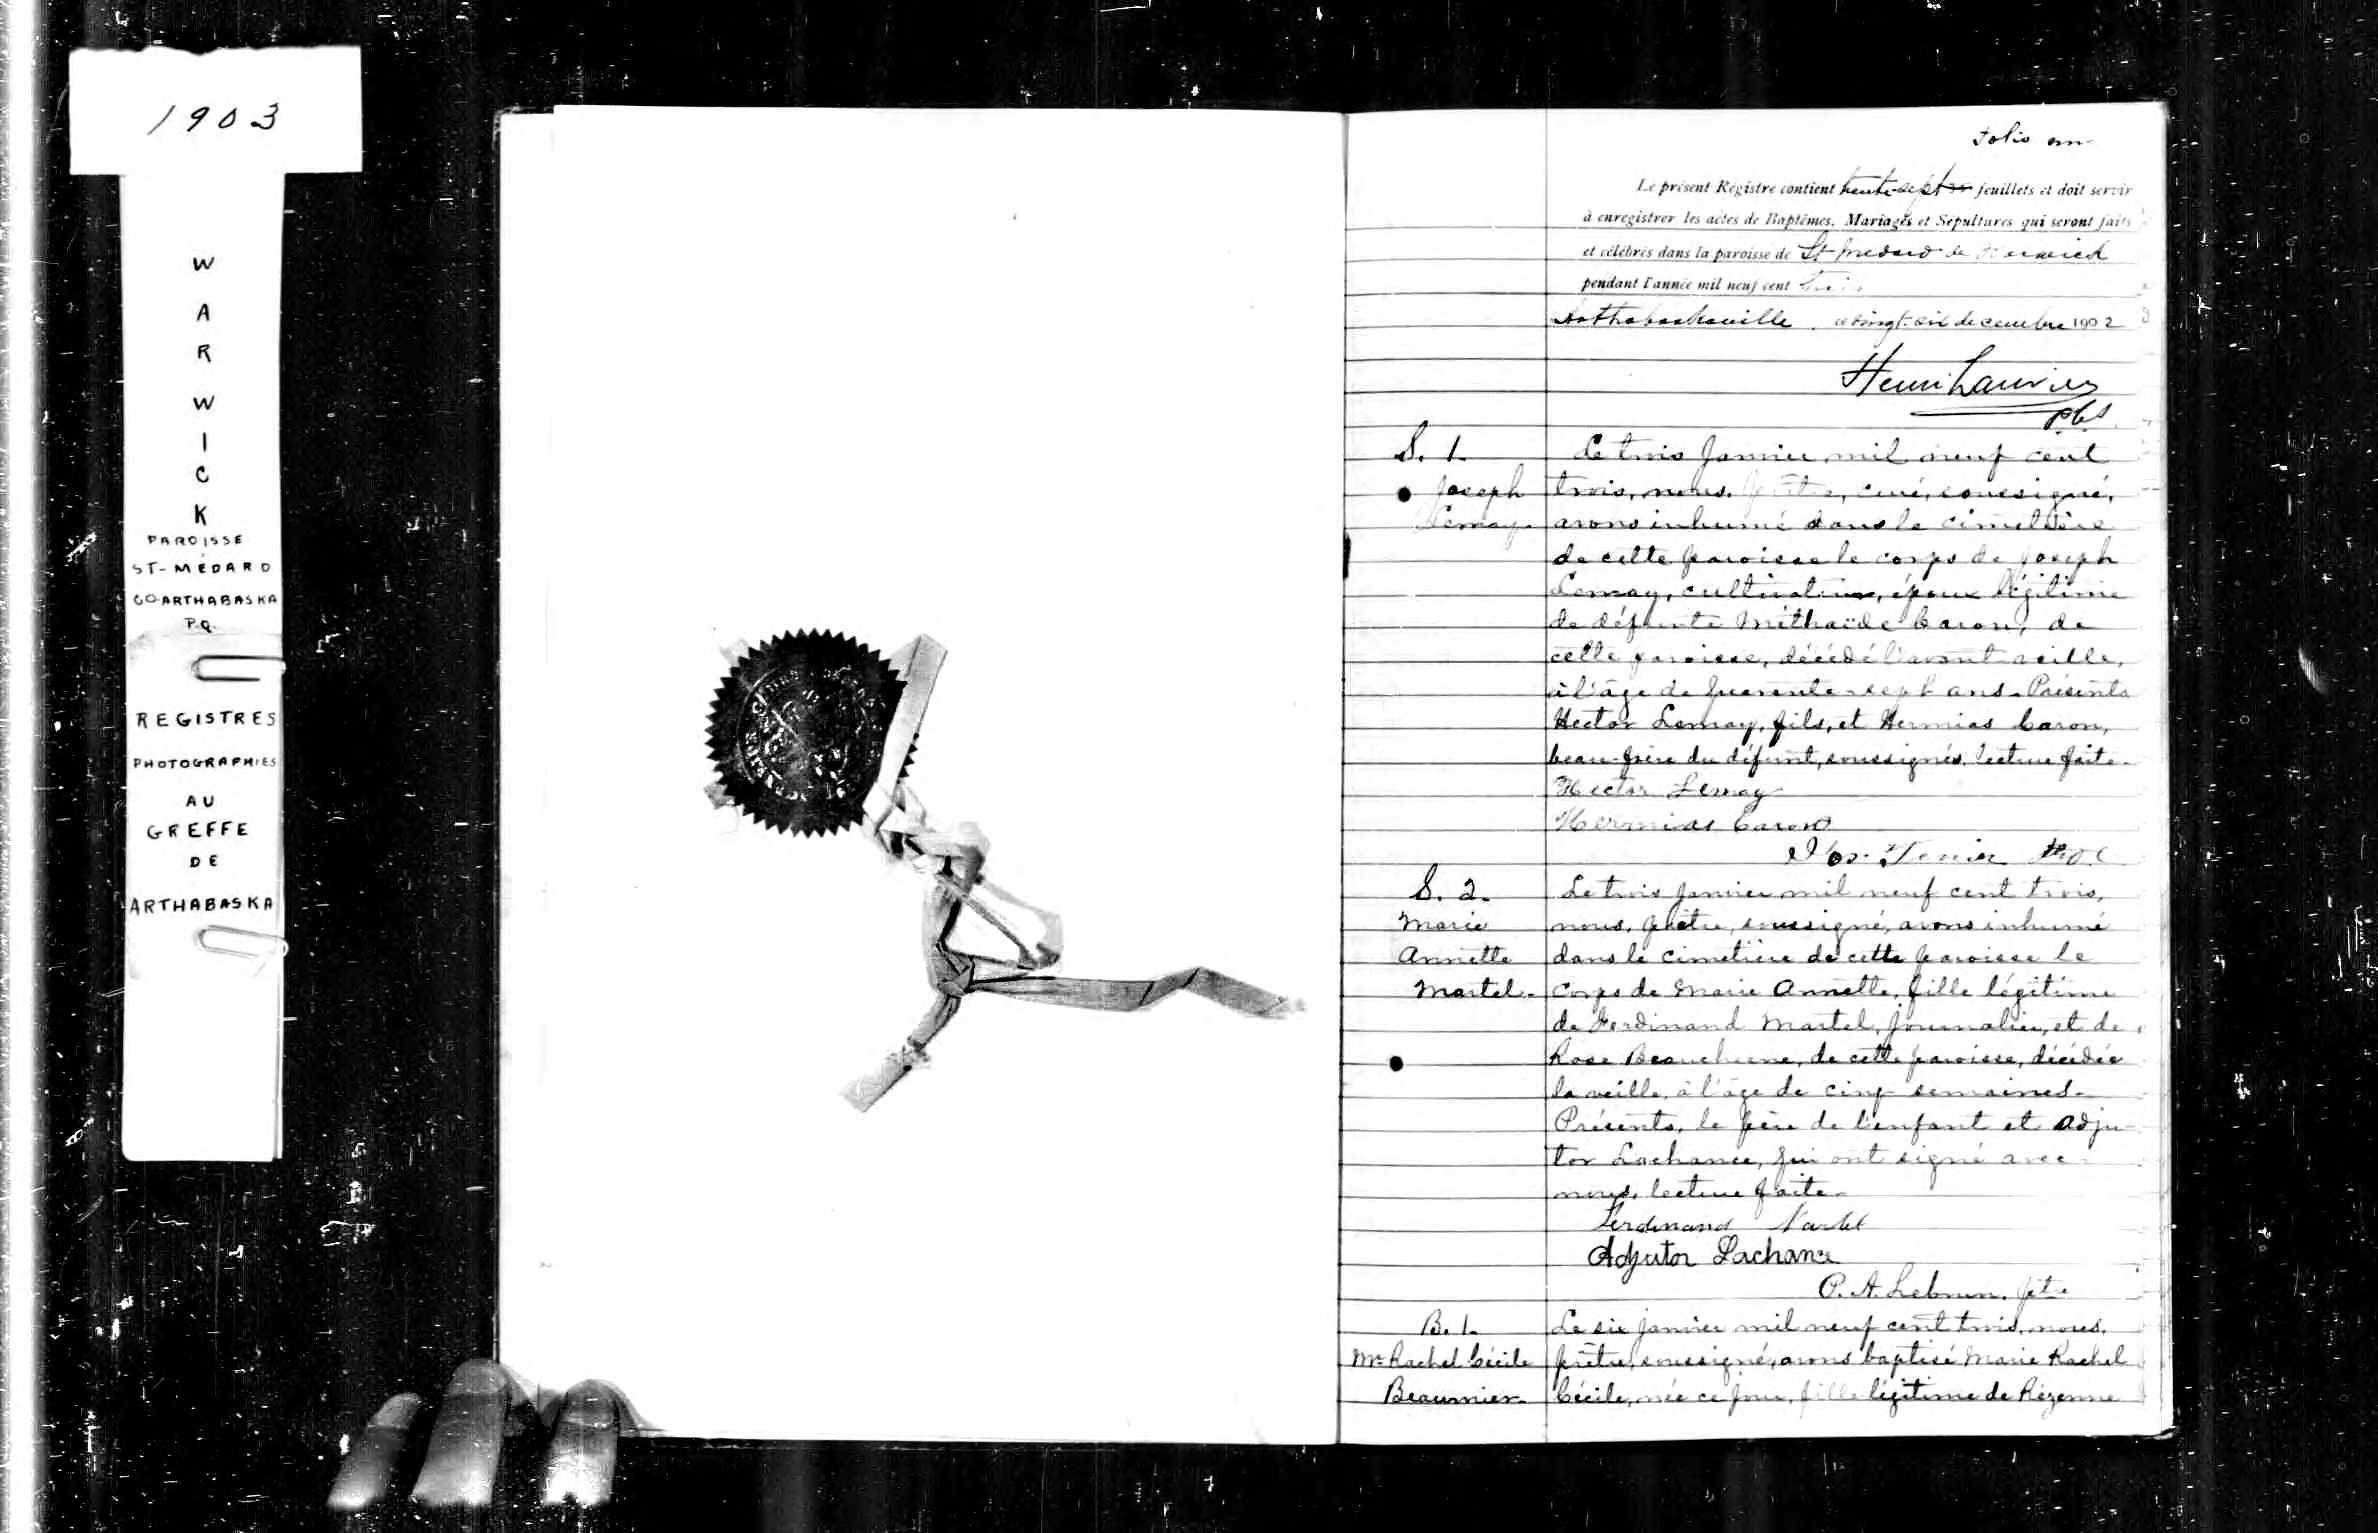 1903
W
A
R
W
I
C
K
PAROISSE
ST-MÉDARD
CO-ARTHABASKA
P.Q.
REGISTRES
PHOTOGRAPHIES
AU
GREFFE
DE
ARTHABASKA
Folio
Le présent Régistre contient trente-sept feuillets et doit servir
à enregistrer les actes de Baptêmes, Mariages et Sépultures qui seront faits
et célébrés dans la paroisse de St Médard de Warwick
pendant l'année mil neuf cent trois
Arthabaskaville, ce vingt-six decembre 1902
Henri Laurier
P.C.S.
S. 1.
Joseph
Lemay.
Le trois Janvier mil neuf cent
trois, nous, prêtre, curé, soussigné,
avons inhumé dans le cimetière
de cette paroisse le corps de Joseph
Lemay, cultivateur, époux légitime
de défunte Mithaïde Caron, de
cette paroisse, décédé l'avant-veille,
à l'âge de quarante-sept ans. Présents
Hector Lemay, fils, et Hermias Caron,
beau-frère du défunt, soussignés, lecture faite.
Hector Lemay
Hermias Caron
S. 2.
Marie
Annette
Martel.
Le trois Janvier mil neuf cent trois,
nous, prêtre, soussigné, avons inhumé
dans le cimetière de cette paroisse le
corps de Marie Annette, fille légitime
de Ferdinand Martel, journalier, et de
Rose Beauchesne, de cette paroisse, décédée
la veille, à l'âge de cinq semaines.
Présents, le père de l'enfant et Adju-
tor Lachance, qui ont signé avec
nous, lecture faite.
Ferdinand Martel
Adjutor Lachance
P. A. Lebrun, ptre
B. 1.
Me Rachel Cécile
Beaumier.
Le six Janvier mil neuf cent trois, nous,
prêtre, soussigné, avons baptisé Marie Rachel
Cécile, née ce jour, fille légitime de